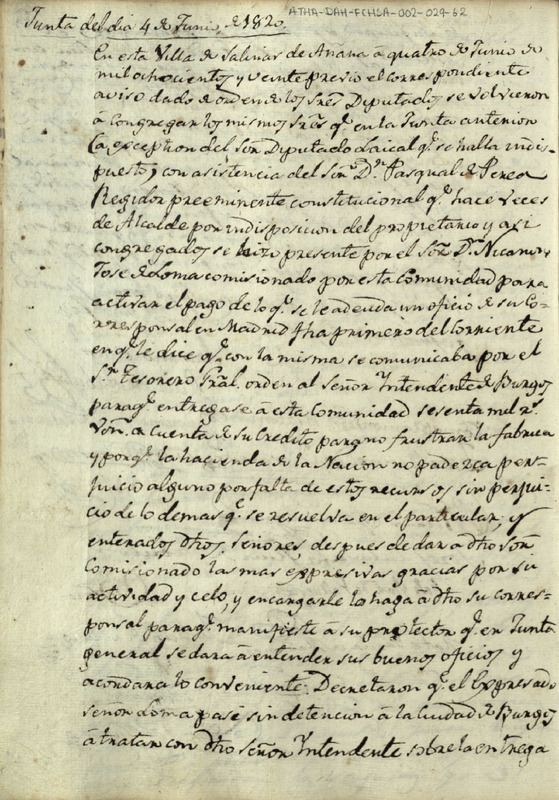 ATHA-DAH-FCHSA-002-029-62
Junta del dia 4 de Junio, de 1820.
En esta Villa de Salinas de Anana a quatro de Junio de
mil ochocientos y veinte previo el correspondiente
aviso dado de orden de los Sres Diputados se volvieron
a congregar los mismos Sres qe en la Junta anterior
(a excepcion del Sor Diputado Laical qe se halla indis-
puesto) con asistencia del Sor Dn Pasqual de Perea
Regidor preeminente constitucional qe hace veces
de Alcalde por indisposicion del propietario y asi
congregados se hizo presente por el Sor Dn Nicanor
Jose de Loma comisionado por esta Comunidad para
activar el pago de lo qe se le adeuda un oficio de su Co-
rresponsal en Madrid fha primero del Corriente
en qe le dice qe con la misma se comunicaba por el
Sr Tesorero Gral. orden al señor Yntendente de Burgos
para qe entregase a esta Comunidad sesenta mil rs
Von. a cuenta de su Credito para no frustrar la fabrica
y porqe la hacienda de la Nacion no padezca per-
juicio alguno por falta de estos recursos sin perjui-
cio de lo demas qe se resuelva en el particular; y
enterados dhos. señores, despues de dar a dho Sor
Comisionado las mas expresivas gracias por su
actividad y celo, y encargarle lo haga a dho su corres-
ponsal para qe manifieste a su protector qe en Junta
general se dara a entender sus buenos oficios y
acordara lo conveniente: Decretaron qe el Expresado
señor Loma pase sin detencion a la Ciudad de Burgos
a tratar con dho señor Yntendente sobre la entrega